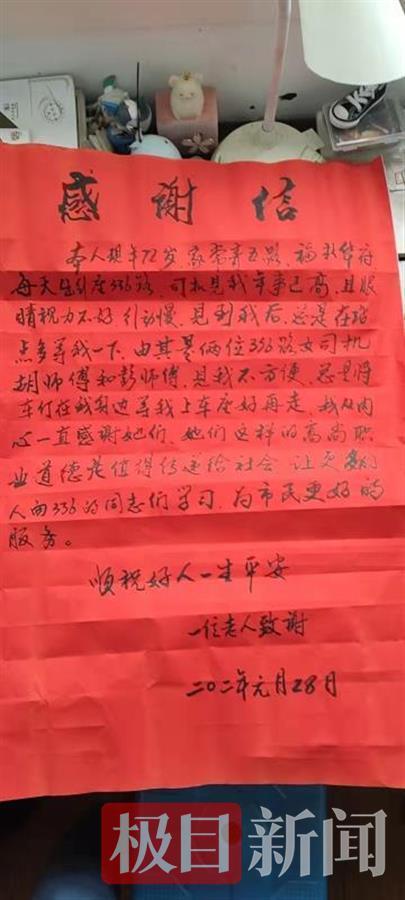 感谢信
本人现年72岁，家常青五路，福新华府
每天出行座336路，司机见我年事已高，且眼
睛视力不好，引动慢，见到我后，总是在站
点多等我一下，由其是俩位336路女司机
胡师傅和彭师傅，见我不方便，总是将
车停在我身边等我上车座好再走，我从内
心一直感谢她们，她们这样的高尚职
业道德是值得传递给社会，让更多的
人向336的同志们学习，为市民更好的
服务。
顺祝好人一生平安
一位老人致谢
二〇二年元月28日
极目新闻